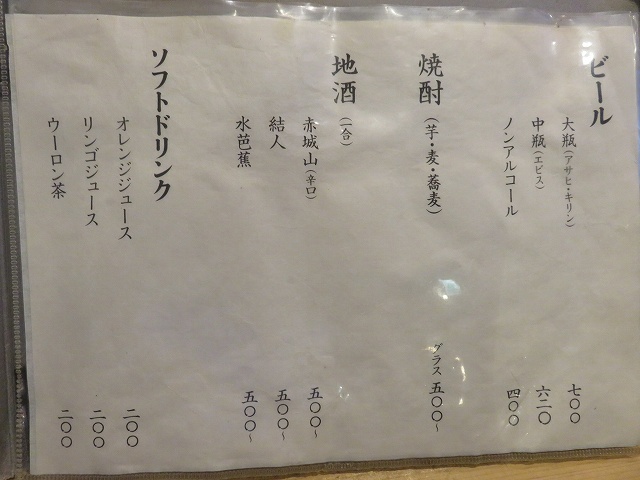 ビール
大瓶(アサヒ・キリン) 七〇〇
中瓶(エビス) 六二〇
ノンアルコール 四〇〇
焼酎(芋・麦・蕎麦) グラス 五〇〇~
地酒(一合)
赤城山(辛口) 五〇〇~
結人 五〇〇~
水芭蕉 五〇〇~
ソフトドリンク
オレンジジュース 二〇〇
リンゴジュース 二〇〇
ウーロン茶 二〇〇